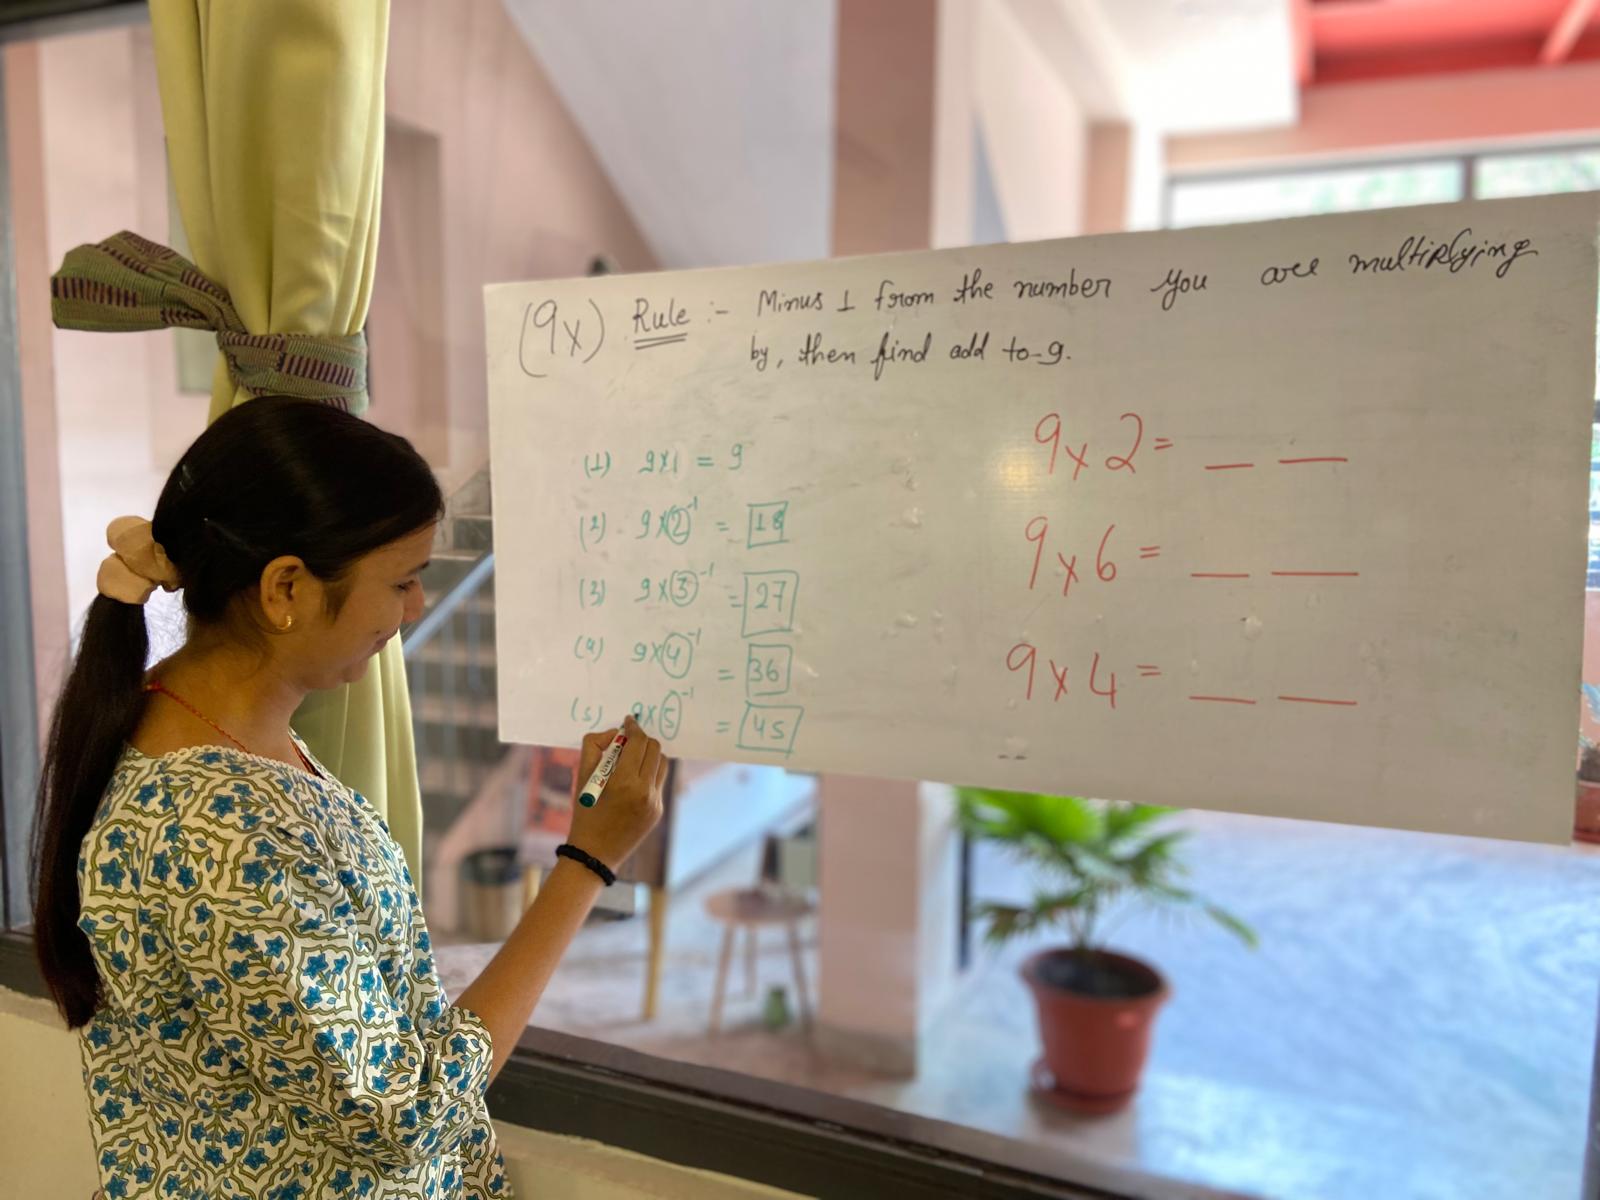 (9x) Rule :- Minus 1 from the number you are multiplying
by, then find add to 9.
(1) 9x1 = 9
(2) 9x2 -1 = 18
(3) 9x3 -1 = 27
(4) 9x4 -1 = 36
(5) 9x5 -1 = 45
9x2 = _ _
9x6 = _ _
9x4 = _ _